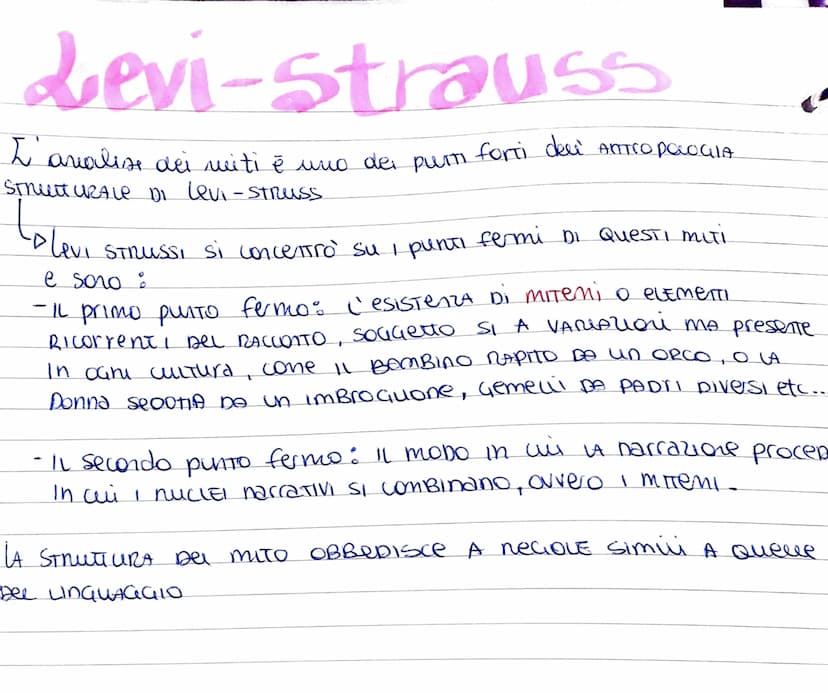 Levi-Strauss
L'analisi dei miti è uno dei punti forti dell'ANTROPOLOGIA
STRUTTURALE DI LEVI-STRUSS
LEVI STRUSSI SI CONCENTRÒ SU I PUNTI FERMI DI QUESTI MITI
E SONO:
- IL PRIMO PUNTO FERMO: L'ESISTENZA DI MITEMI O ELEMENTI
RICORRENTI DEL RACCOTTO, SOGGETTO SI A VARIAZIONI MA PRESENTE
IN OGNI CULTURA, COME IL BAMBINO RAPITO DA UN ORCO, O LA
DONNA SEDOTTA DA UN IMBROGLIONE, GEMELLI DA PADTI DIVERSI etc...
- IL SECONDO PUNTO FERMO: IL MODO IN CUI LA NARRAZIONE PROCED
IN CUI I NUCLEI NARRATIVI SI COMBINANO, OVVERO I MITEMI.
LA STRUTTURA DEI MITO OBBEDISCE A REGOLE SIMILI A QUELLE
DEL LINGUAGGIO